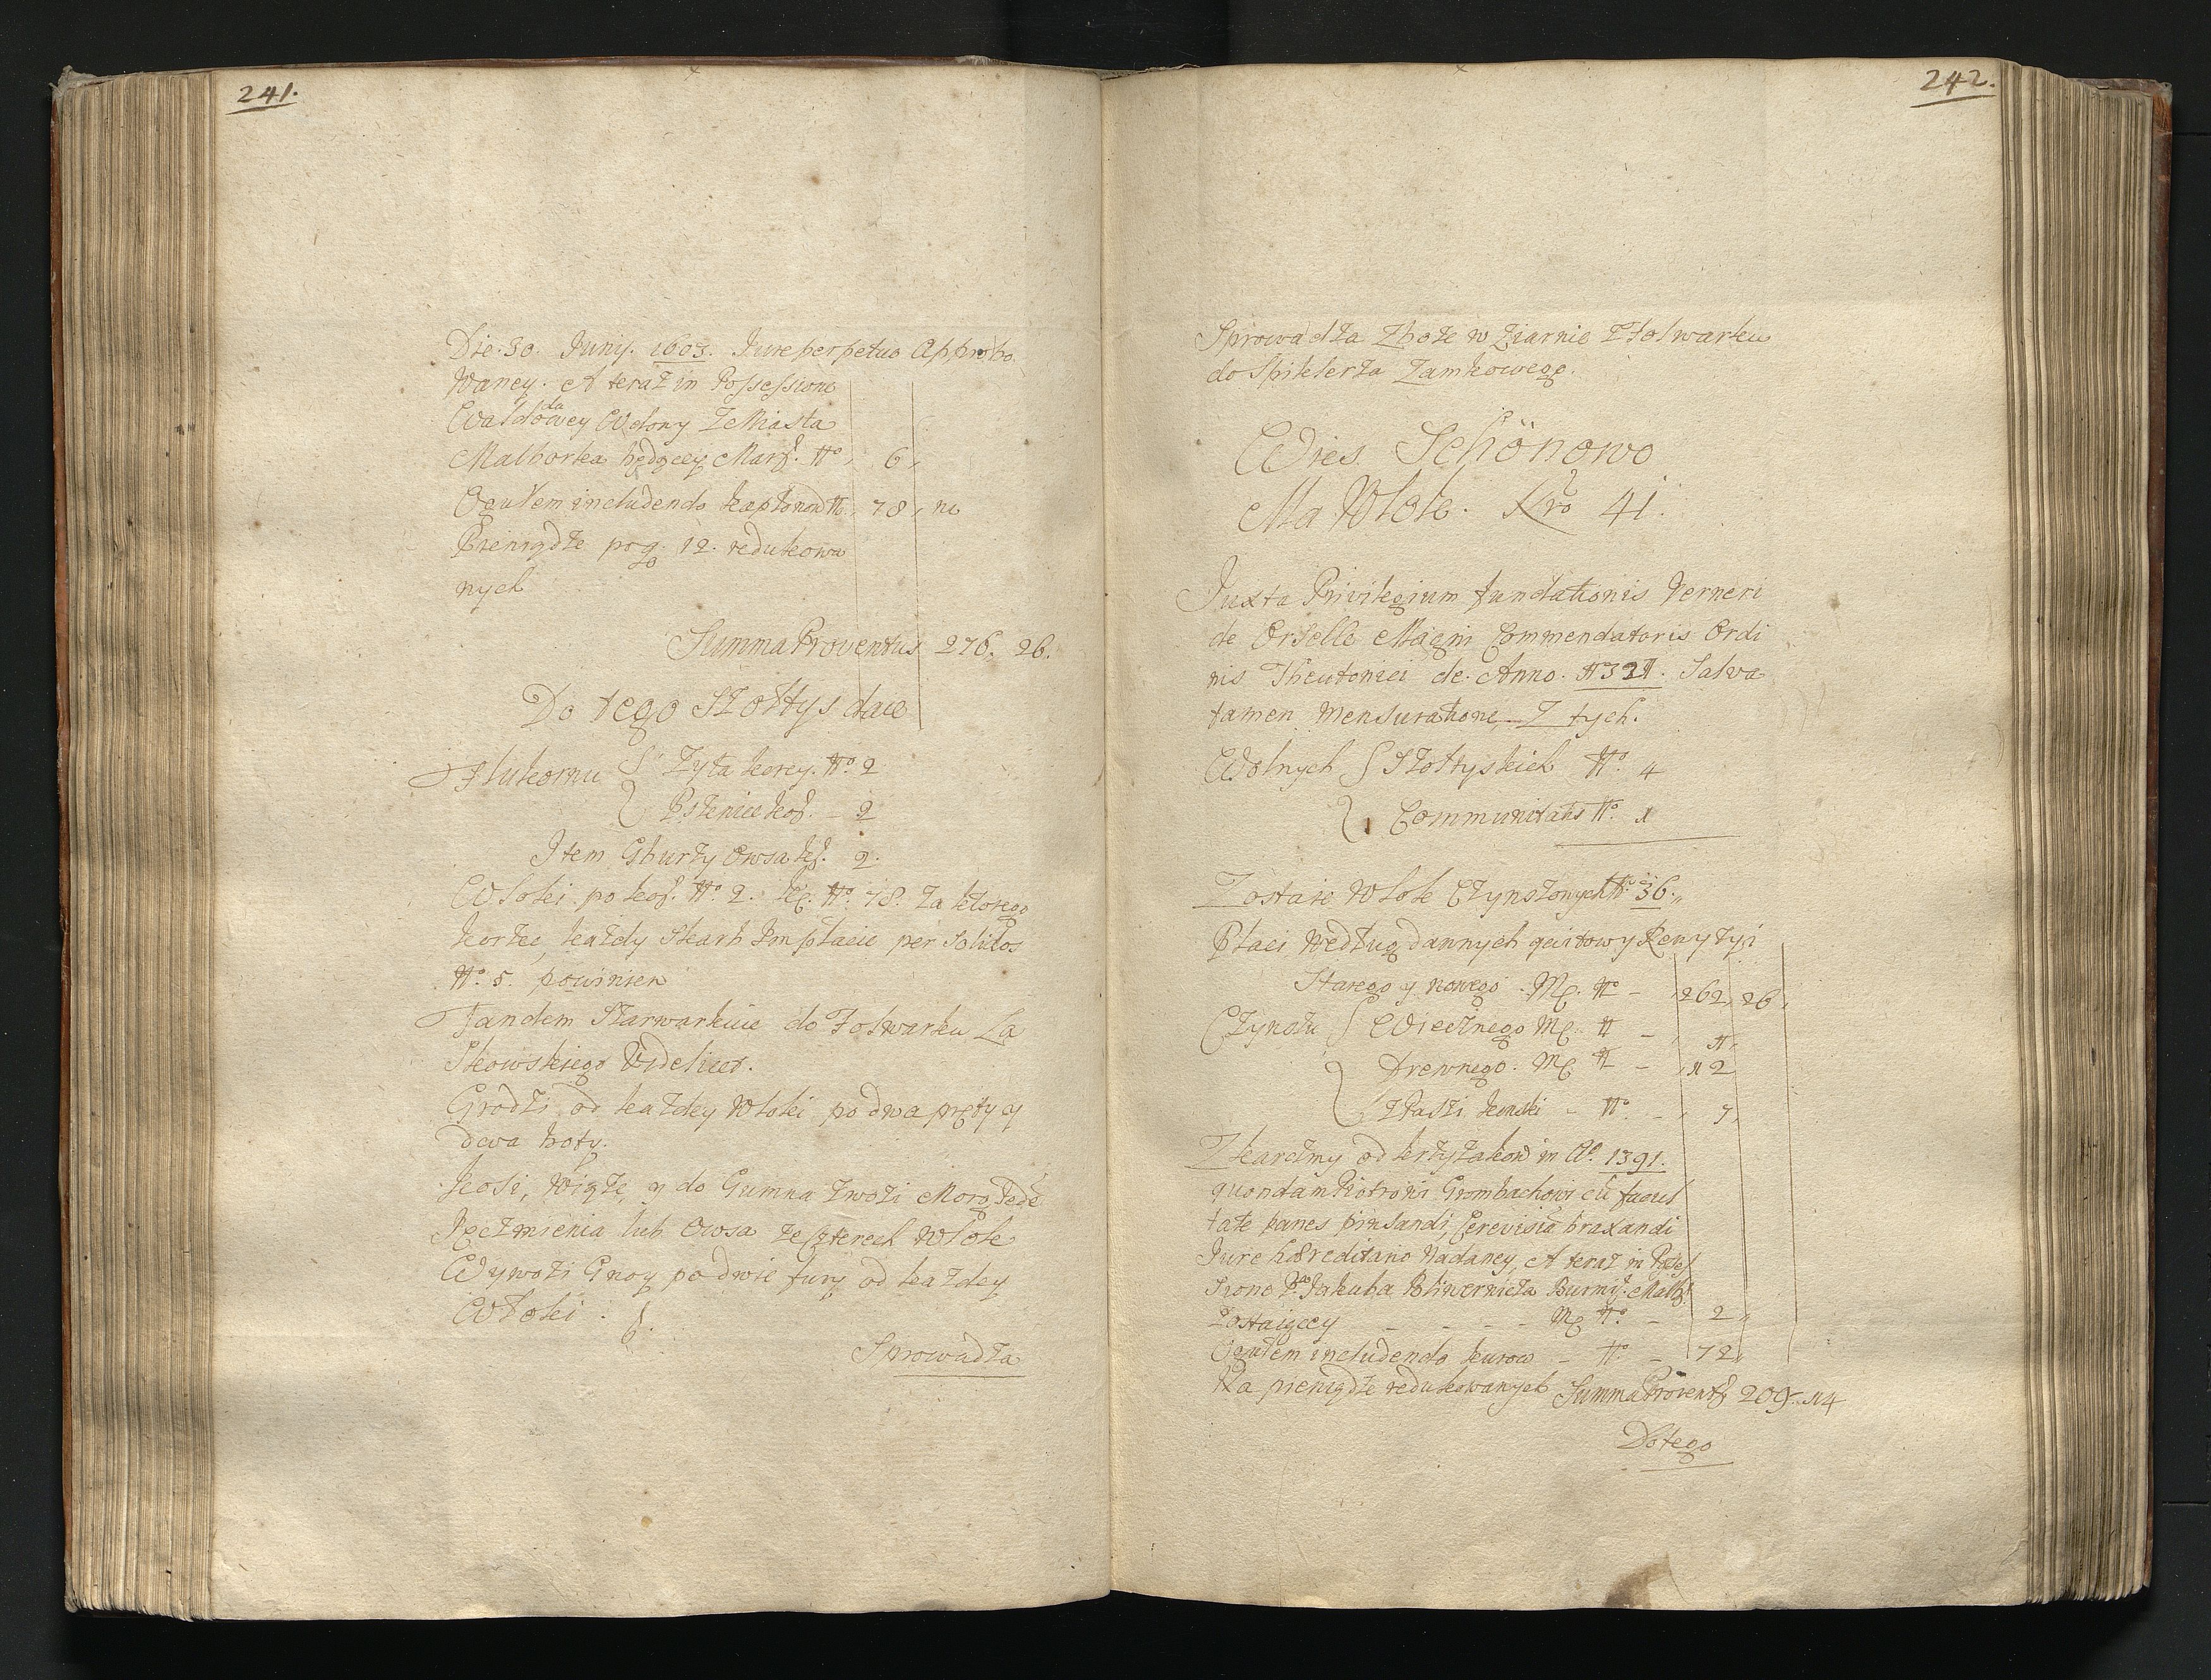 241.
Die. 30. Junÿ. 1603. Jure perpetuo Approbo
waney. A teraz in Possessione
Waldowey Wdowy z Miasta
Malborka będącey Marz. No 6,
Ogułem includendo kapłonow No, 78, na
Pieniądze po g. 12. redukowa
nych
Summa Proventus 276. 26.
Do tego Szołtys daie
Płukornu { Zyta korcy. No. 2
{ Pszenice kor. - 2
Item Gburzy Owsa k. 2.
Włoki po kor. No 2. k. No. 78. za ktorego
korzec każdy Skarb Im płacić per Solidos
No. 5. powinien
Tandem Szarwarkuie do Folwarku La
skowskiego Videlicet.
Grodzi od każdey Włoki po dwa pręty y
dwa
Kosi, Wiąże y do Gumna zwozi Morg Jedę
Jęczmienia lub Owsa ze czterech Włok
Wywozi Gnoy po dwie fury od każdey
Włoki.
Sprowadza
242.
Sprowadza Zboże w Ziarnie z Folwarku
do Spiklerza Zamkowego.
Wies Schönowo
Ma Włok. Nro 41.
Juxta Privilegium fundationis Verneri
de Orselle Magni Commendatoris Ordi
nis Theutonici de Anno. 1321. Salva
tamen Mensuratione, Z tych.
Wolnych { Szołtyskich No. 4
{ Communitatis No. 1
Zostaie Włok Czynszowych No. 36.,,
Płaci Według dannych qvitow y Rewyzyi
Starego y nowego. M. No - 262, 26,
Czynszu { Wiecznego M. N - 1,
{ Drewnego. M. N - 12
{ z Paszi konski - No. - 7,
Z karczmy od krzyżakow in Ao. 1391.
quondam Piotrowi Grombachowi cũ facul
tate panes pinsandi, Cerevisiã braxandi
Jure hæreditario Nadaney, A teraz in Posses
sione Pa Jakuba Burmi. Malb.
Zostaiącey - - - - M. No. - 2,,
Ogułem includendo kurow - No. - 72,
Na pieniądze redukowanych Summa Provent. 209. 14
Do tego